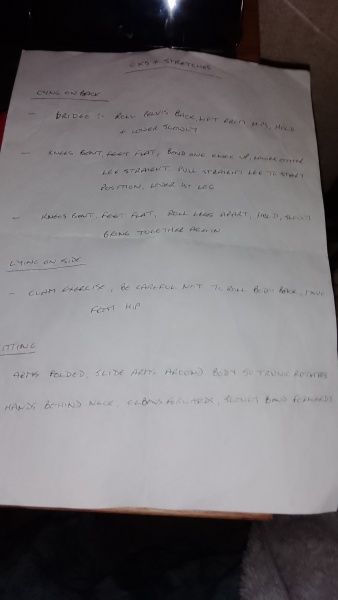 EX'S & STRETCHES
LYING ON BACK
- BRIDGING ROLL PELVIS BACK, LIFT FROM HIPS, HOLD
& LOWER SLOWLY
- KNEES BENT, FEET FLAT, BEND ONE KNEE UP, OTHER
LEG STRAIGHT PULL STRAIGHT LEG TO START
POSITION, LOWER 1ST LEG
- KNEES BENT, FEET FLAT, ROLL LEGS APART, HOLD, SLOWLY
BRING TOGETHER AGAIN
LYING ON SIDE
- CLAM EXERCISE, BE CAREFUL NOT TO ROLL BODY BACK,
FROM HIP
ITTING
ARMS FOLDED, SLIDE ARMS AROUND BODY SO TRUNK ROTATES
HANDS BEHIND NECK, ELBOWS FORWARDS, SLOWLY BEND FORWARDS